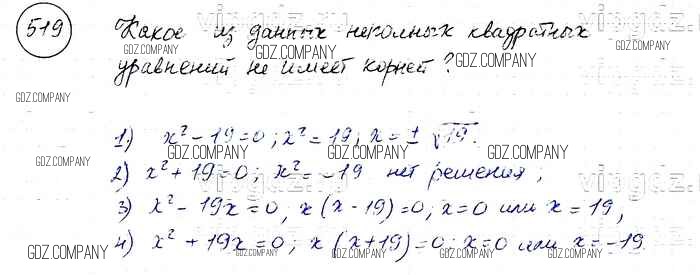 519 Какое из данных неполных квадратных
уравнений не имеет корней?
GDZ.COMPANY GDZ.COMPANY GDZ.COMPANY GDZ.COMPANY
1) x² - 19 = 0; x² = 19; x = ± √19.
GDZ.COMPANY GDZ.COMPANY GDZ.COMPANY
2) x² + 19 = 0; x² = -19 нет решения;
3) x² - 19x = 0, x (x - 19) = 0; x = 0 или x = 19,
4) x² + 19x = 0; x (x + 19) = 0; x = 0 или x = -19
GDZ.COMPANY GDZ.COMPANY GDZ.COMPANY GDZ.COMPANY